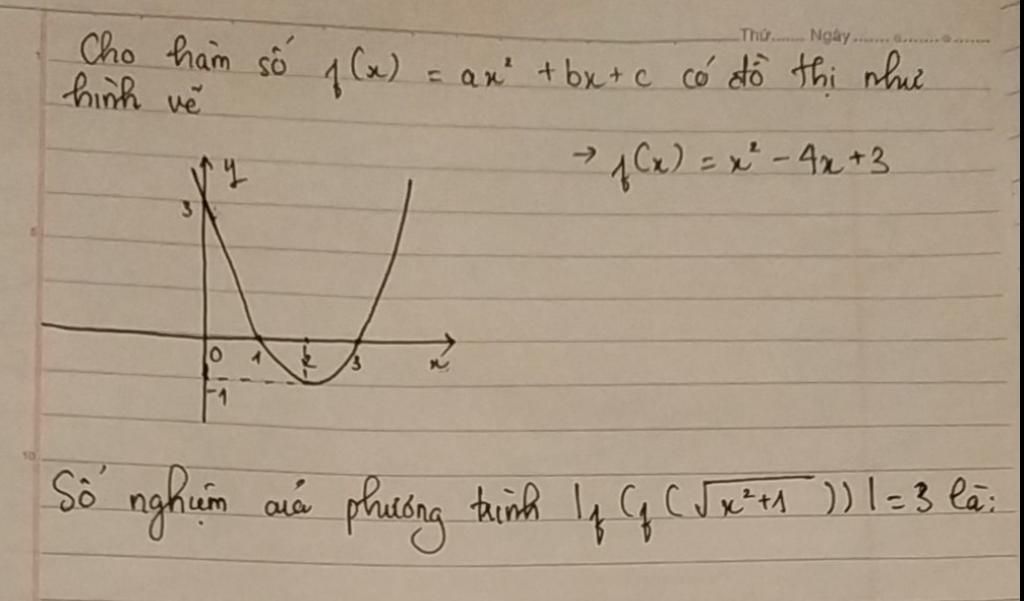 Thứ...... Ngày.......
Cho hàm số f(x) = ax² + bx + c có đồ thị như
hình vẽ
→ f(x) = x² - 4x + 3
y
3
0 1 2 3 x
-1
Số nghiệm của phương trình |f(f(√(x²+1)))| = 3 là:
5
10